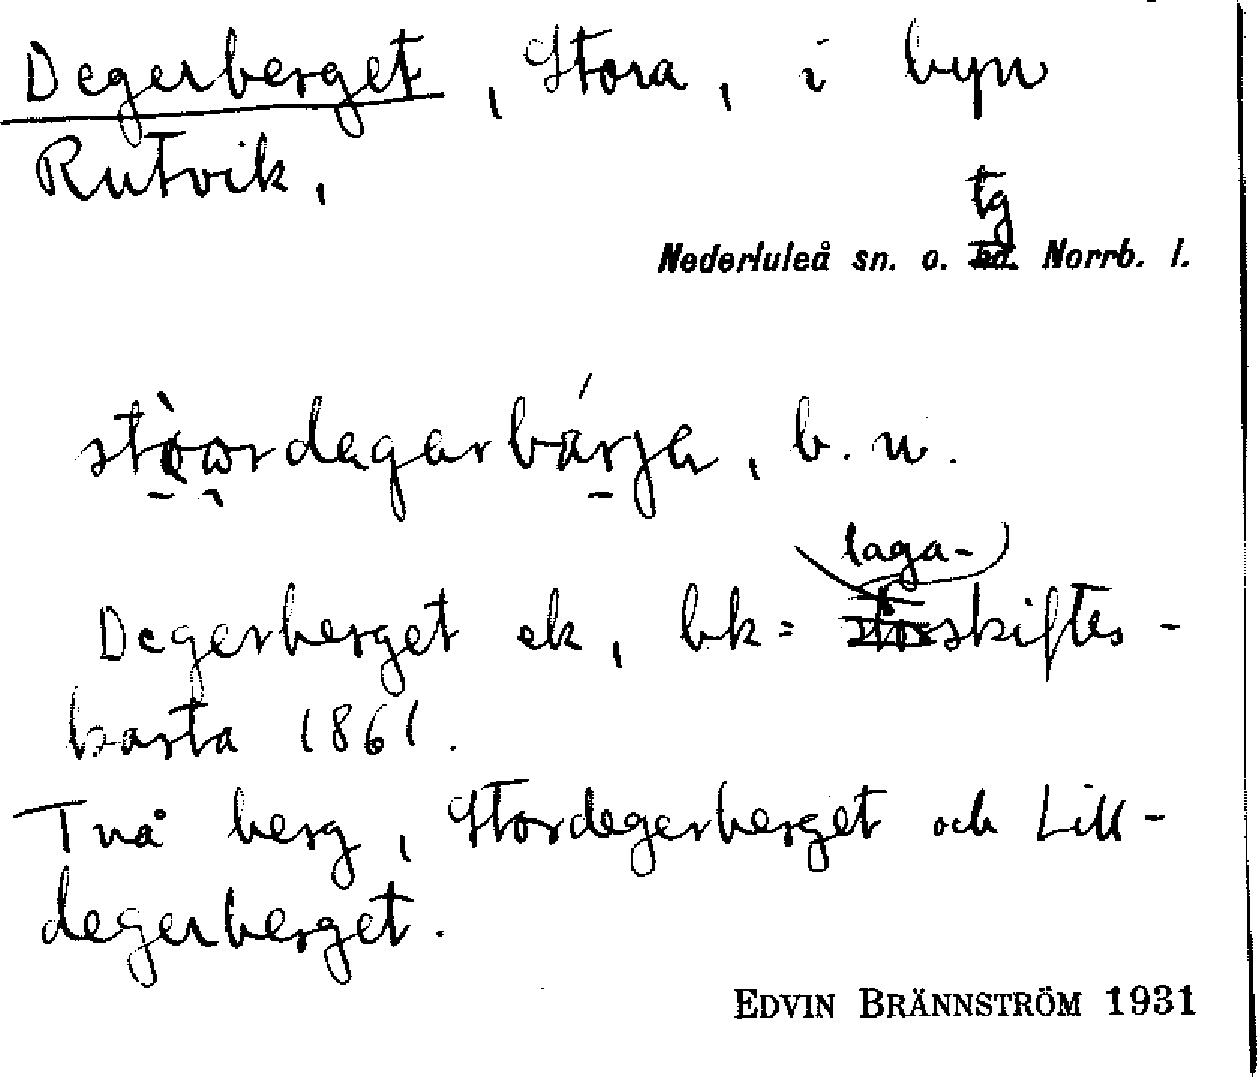 Degerberget, Stora, i byn
Rutvik,
tg
Nederluleå sn. o. hd. Norrb. l.
b. n.
laga-
Degerberget ek, bk = storskiftes-
karta 1861.
Två berg, Stordegerberget och Lill-
degerberget.
EDVIN BRÄNNSTRÖM 1931